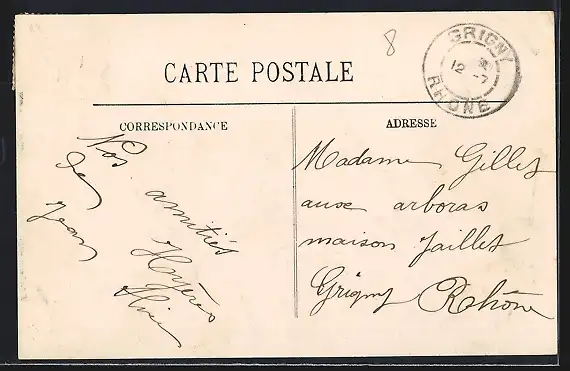 8
GRIGNY
12 -7
RHONE
CARTE POSTALE
CORRESPONDANCE
ADRESSE
Nos amitiés
Hyères
Madame Gillet
aux arboras
maison Jaillet
Grigny Rhône